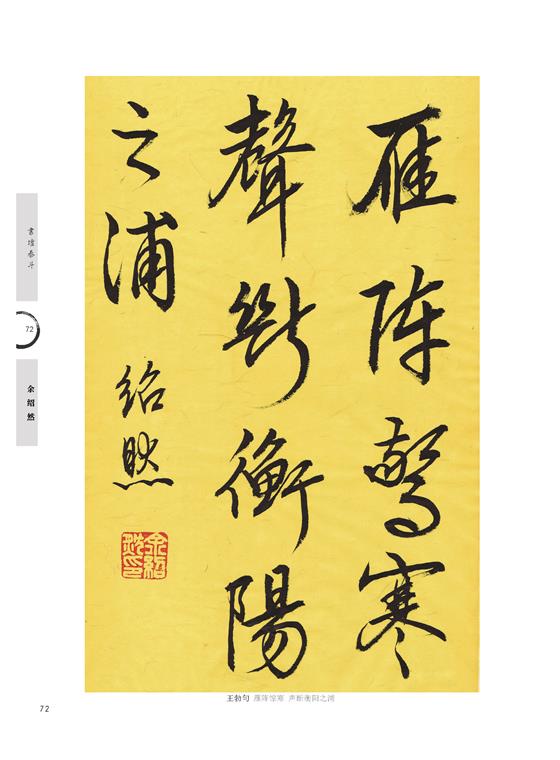 雁阵驚寒
聲斷衡陽
之浦
绍然
書壇泰斗
72
余绍然
王勃句 雁阵惊寒 声断衡阳之浦
72